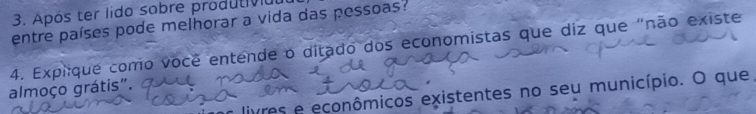 3. Após ter lido sobre produtivida
entre países pode melhorar a vida das pessoas?
4. Explique como você entende o ditado dos economistas que diz que "não existe
almoço grátis". que nada é de graça sem que dei
alguma coisa em troca.
livres e econômicos existentes no seu município. O que